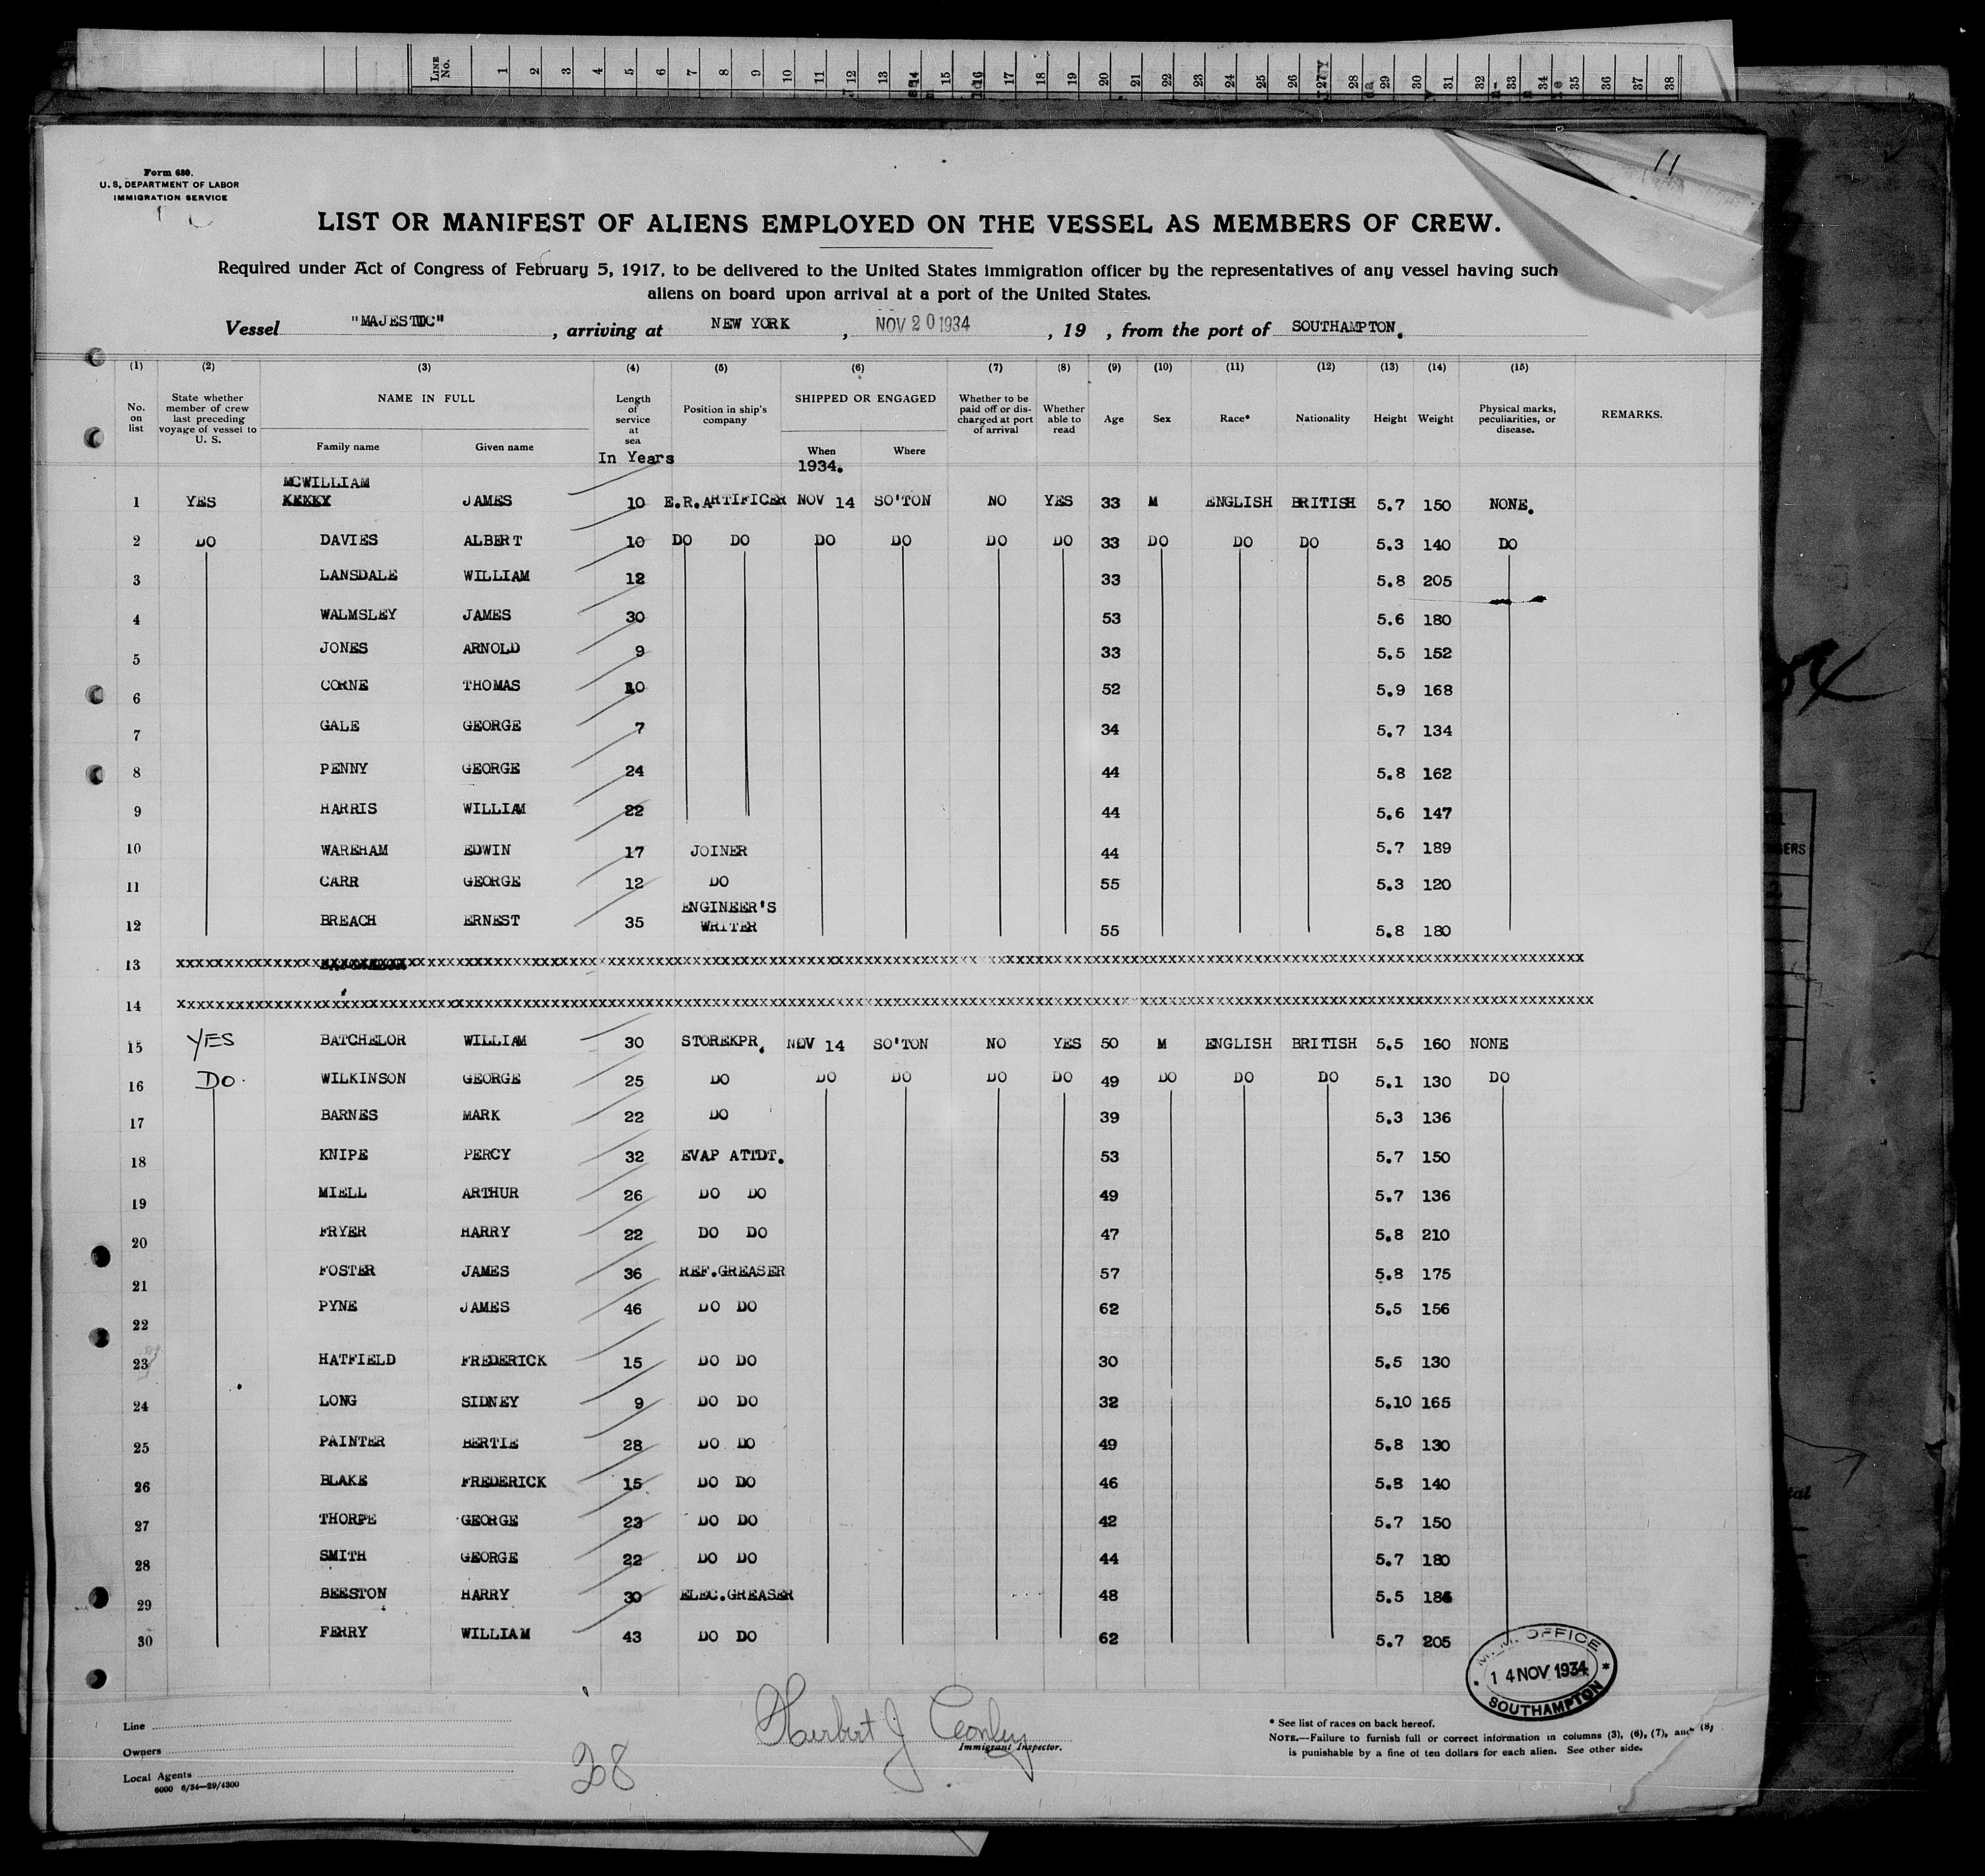 LINE No. 1 2 3 4 5 6 7 8 9 10 11 12 13 14 15 16 17 18 19 20 21 22 23 24 25 26 27 28 29 30 31 32 33 34 35 36 37 38
11
Form 680.
U. S. DEPARTMENT OF LABOR
IMMIGRATION SERVICE
LIST OR MANIFEST OF ALIENS EMPLOYED ON THE VESSEL AS MEMBERS OF CREW.
Required under Act of Congress of February 5, 1917, to be delivered to the United States immigration officer by the representatives of any vessel having such
aliens on board upon arrival at a port of the United States.
Vessel "MAJESTIC", arriving at NEW YORK, NOV 20 1934, 19 , from the port of SOUTHAMPTON.
(1) (2) (3) (4) (5) (6) (7) (8) (9) (10) (11) (12) (13) (14) (15)
No. on list
State whether member of crew last preceding voyage of vessel to U. S.
NAME IN FULL
Family name Given name
Length of service at sea
In Years
Position in ship's company
SHIPPED OR ENGAGED
When Where
1934.
Whether to be paid off or discharged at port of arrival
Whether able to read
Age Sex Race* Nationality Height Weight
Physical marks, peculiarities, or disease.
REMARKS.
MCWILLIAM
1 YES JAMES 10 E.R.ARTIFICER NOV 14 SO'TON NO YES 33 M ENGLISH BRITISH 5.7 150 NONE.
2 DO DAVIES ALBERT 10 DO DO DO DO DO DO 33 DO DO DO 5.3 140 DO
3 LANSDALE WILLIAM 12 33 5.8 205
4 WALMSLEY JAMES 30 53 5.6 180
5 JONES ARNOLD 9 33 5.5 152
6 CORNE THOMAS 10 52 5.9 168
7 GALE GEORGE 7 34 5.7 134
8 PENNY GEORGE 24 44 5.8 162
9 HARRIS WILLIAM 22 44 5.6 147
10 WAREHAM EDWIN 17 JOINER 44 5.7 189
11 CARR GEORGE 12 DO 55 5.3 120
12 BREACH ERNEST 35 ENGINEER'S WRITER 55 5.8 180
13
14
15 YES BATCHELOR WILLIAM 30 STOREKPR. NOV 14 SO'TON NO YES 50 M ENGLISH BRITISH 5.5 160 NONE
16 DO. WILKINSON GEORGE 25 DO DO DO DO DO 49 DO DO DO 5.1 130 DO
17 BARNES MARK 22 DO 39 5.3 136
18 KNIPE PERCY 32 EVAP ATTDT. 53 5.7 150
19 MIELL ARTHUR 26 DO DO 49 5.7 136
20 FRYER HARRY 22 DO DO 47 5.8 210
21 FOSTER JAMES 36 REF.GREASER 57 5.8 175
22 PYNE JAMES 46 DO DO 62 5.5 156
23 HATFIELD FREDERICK 15 DO DO 30 5.5 130
24 LONG SIDNEY 9 DO DO 32 5.10 165
25 PAINTER BERTIE 28 DO DO 49 5.8 130
26 BLAKE FREDERICK 15 DO DO 46 5.8 140
27 THORPE GEORGE 23 DO DO 42 5.7 150
28 SMITH GEORGE 22 DO DO 44 5.7 180
29 BEESTON HARRY 30 ELEC.GREASER 48 5.5
30 FERRY WILLIAM 43 DO DO 62 5.7 205
M.M. OFFICE
14 NOV 1934
SOUTHAMPTON
Line
Owners
Local Agents
6000 6/34—29/4300
28
Herbert J Conley
Immigrant Inspector.
* See list of races on back hereof.
NOTE.—Failure to furnish full or correct information in columns (3), (6), (7), and (8)
is punishable by a fine of ten dollars for each alien. See other side.